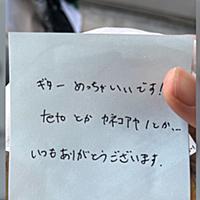 ギター めっちゃいいです!
tetoとか カネコアヤノとか、、
いつもありがとうございます.